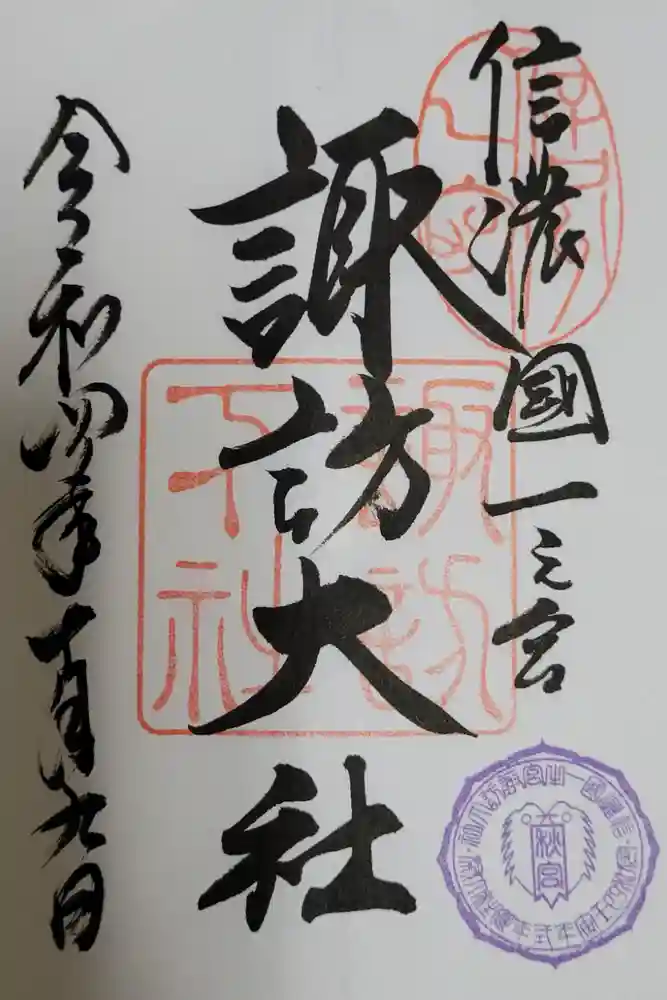 信濃國一之宮
諏訪大社
令和四年十月九日
諏訪
下社
秋宮